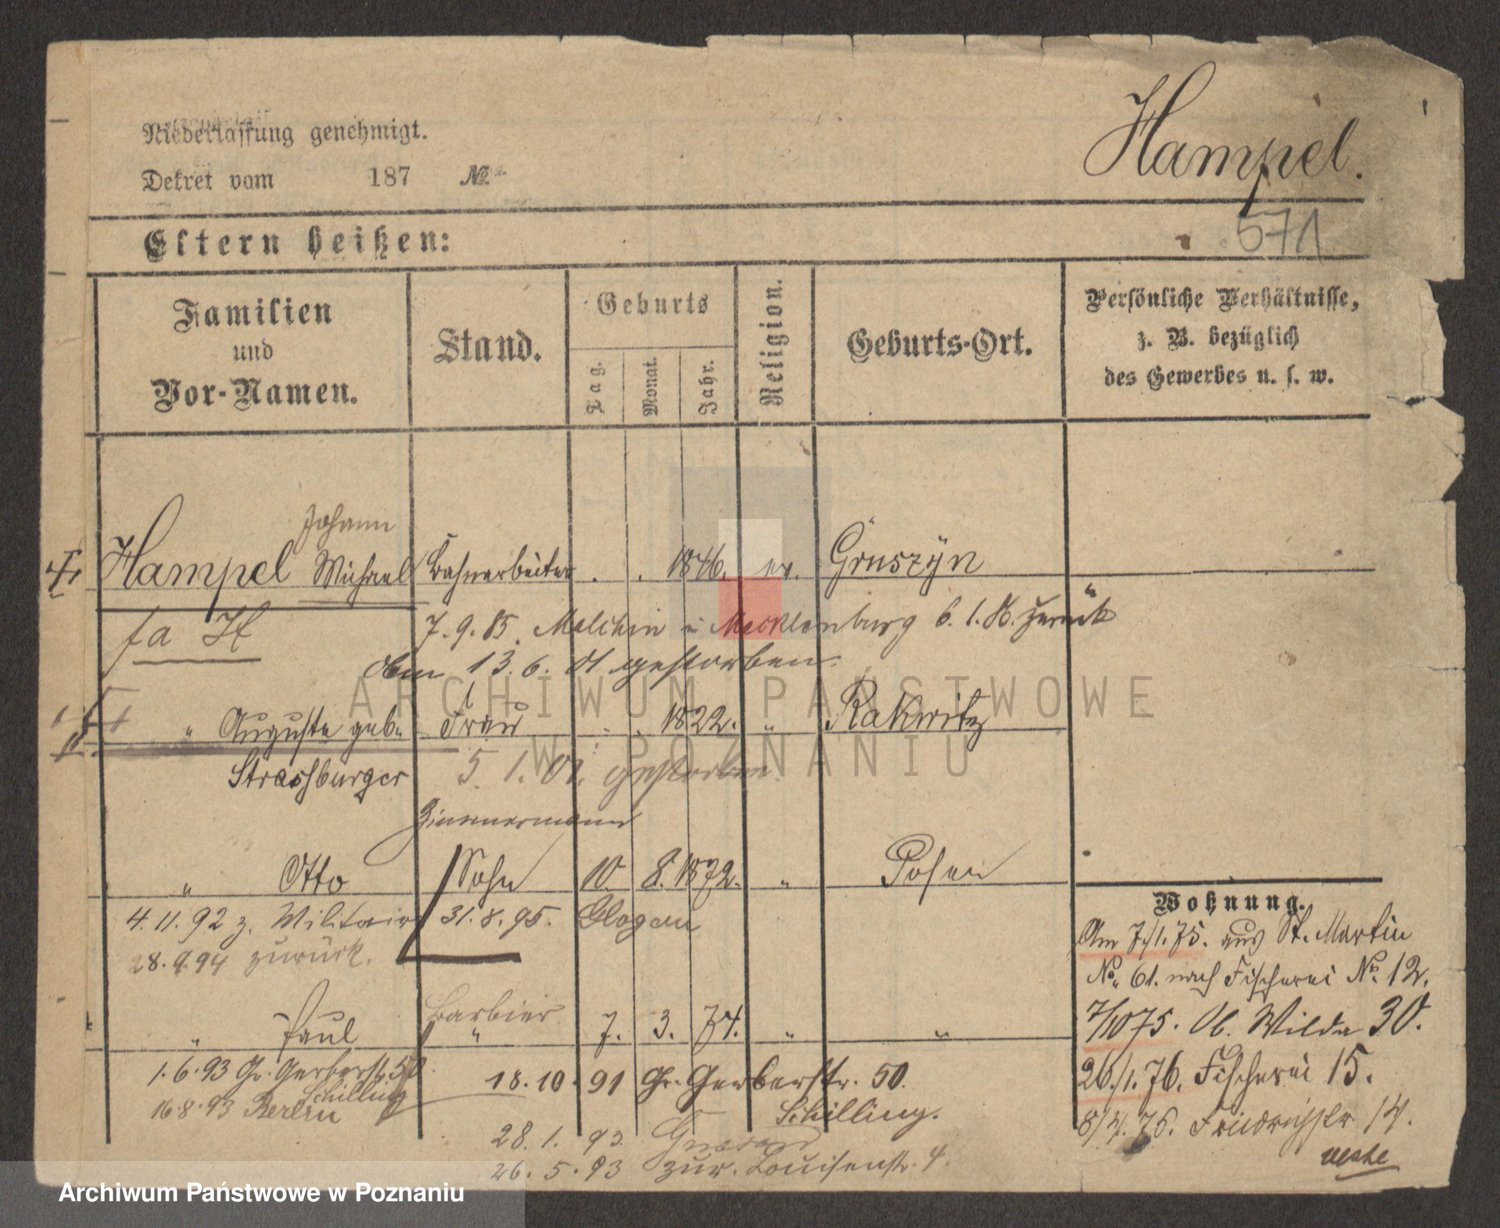 Hampel.
Niederlassung genehmigt.
Dekret vom 187 №
571
Eltern heißen:
Familien und Vor-Namen.
Stand.
Geburts
Tag.
Monat.
Jahr.
Religion.
Geburts-Ort.
Persönliche Verhältnisse,
z. B. bezüglich
des Gewerbes u. s. w.
Johann
Hampel Michael Bahnarbeiter . . 1846. ev. Gruszyn
fa H 7.9.85. Malchin i Mecklenburg 6.1.86 zurück
Am 13.6.01 gestorben.
" Auguste geb. Frau . . 1822. " Rakwitz
Strasburger 5.1.01 gestorben
Zimmermann
" Otto Sohn 10. 8. 1872. " Posen
4.11.92 z. Militair 31.8.95. Glogau
28.9.94 zurück.
Barbier
" Paul " 7. 3. 74. " "
1.6.93 Gr. Gerberstr. 50 18.10.91 Gr. Gerberstr. 50.
Schilling Schilling.
16.8.93 Berlin
28.1.93
26.5.93 zur. Louisenstr. 4.
Wohnung.
Am 7./1.75. aus St. Martin
No. 61. nach Fischerei No. 12.
7/10 75. Ob. Wilda 30.
26./1.76. Fischerei 15.
8/4.76. Friedrichstr. 14.
ARCHIWUM PAŃSTWOWE
W POZNANIU
Archiwum Państwowe w Poznaniu